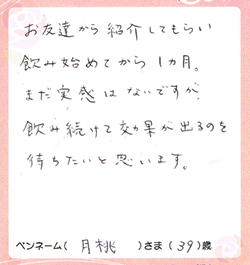 お友達から紹介してもらい
飲み始めてから1カ月。
まだ実感はないですが、
飲み続けて効果が出るのを
待ちたいと思います。
ペンネーム( 月桃 )さま(39)歳